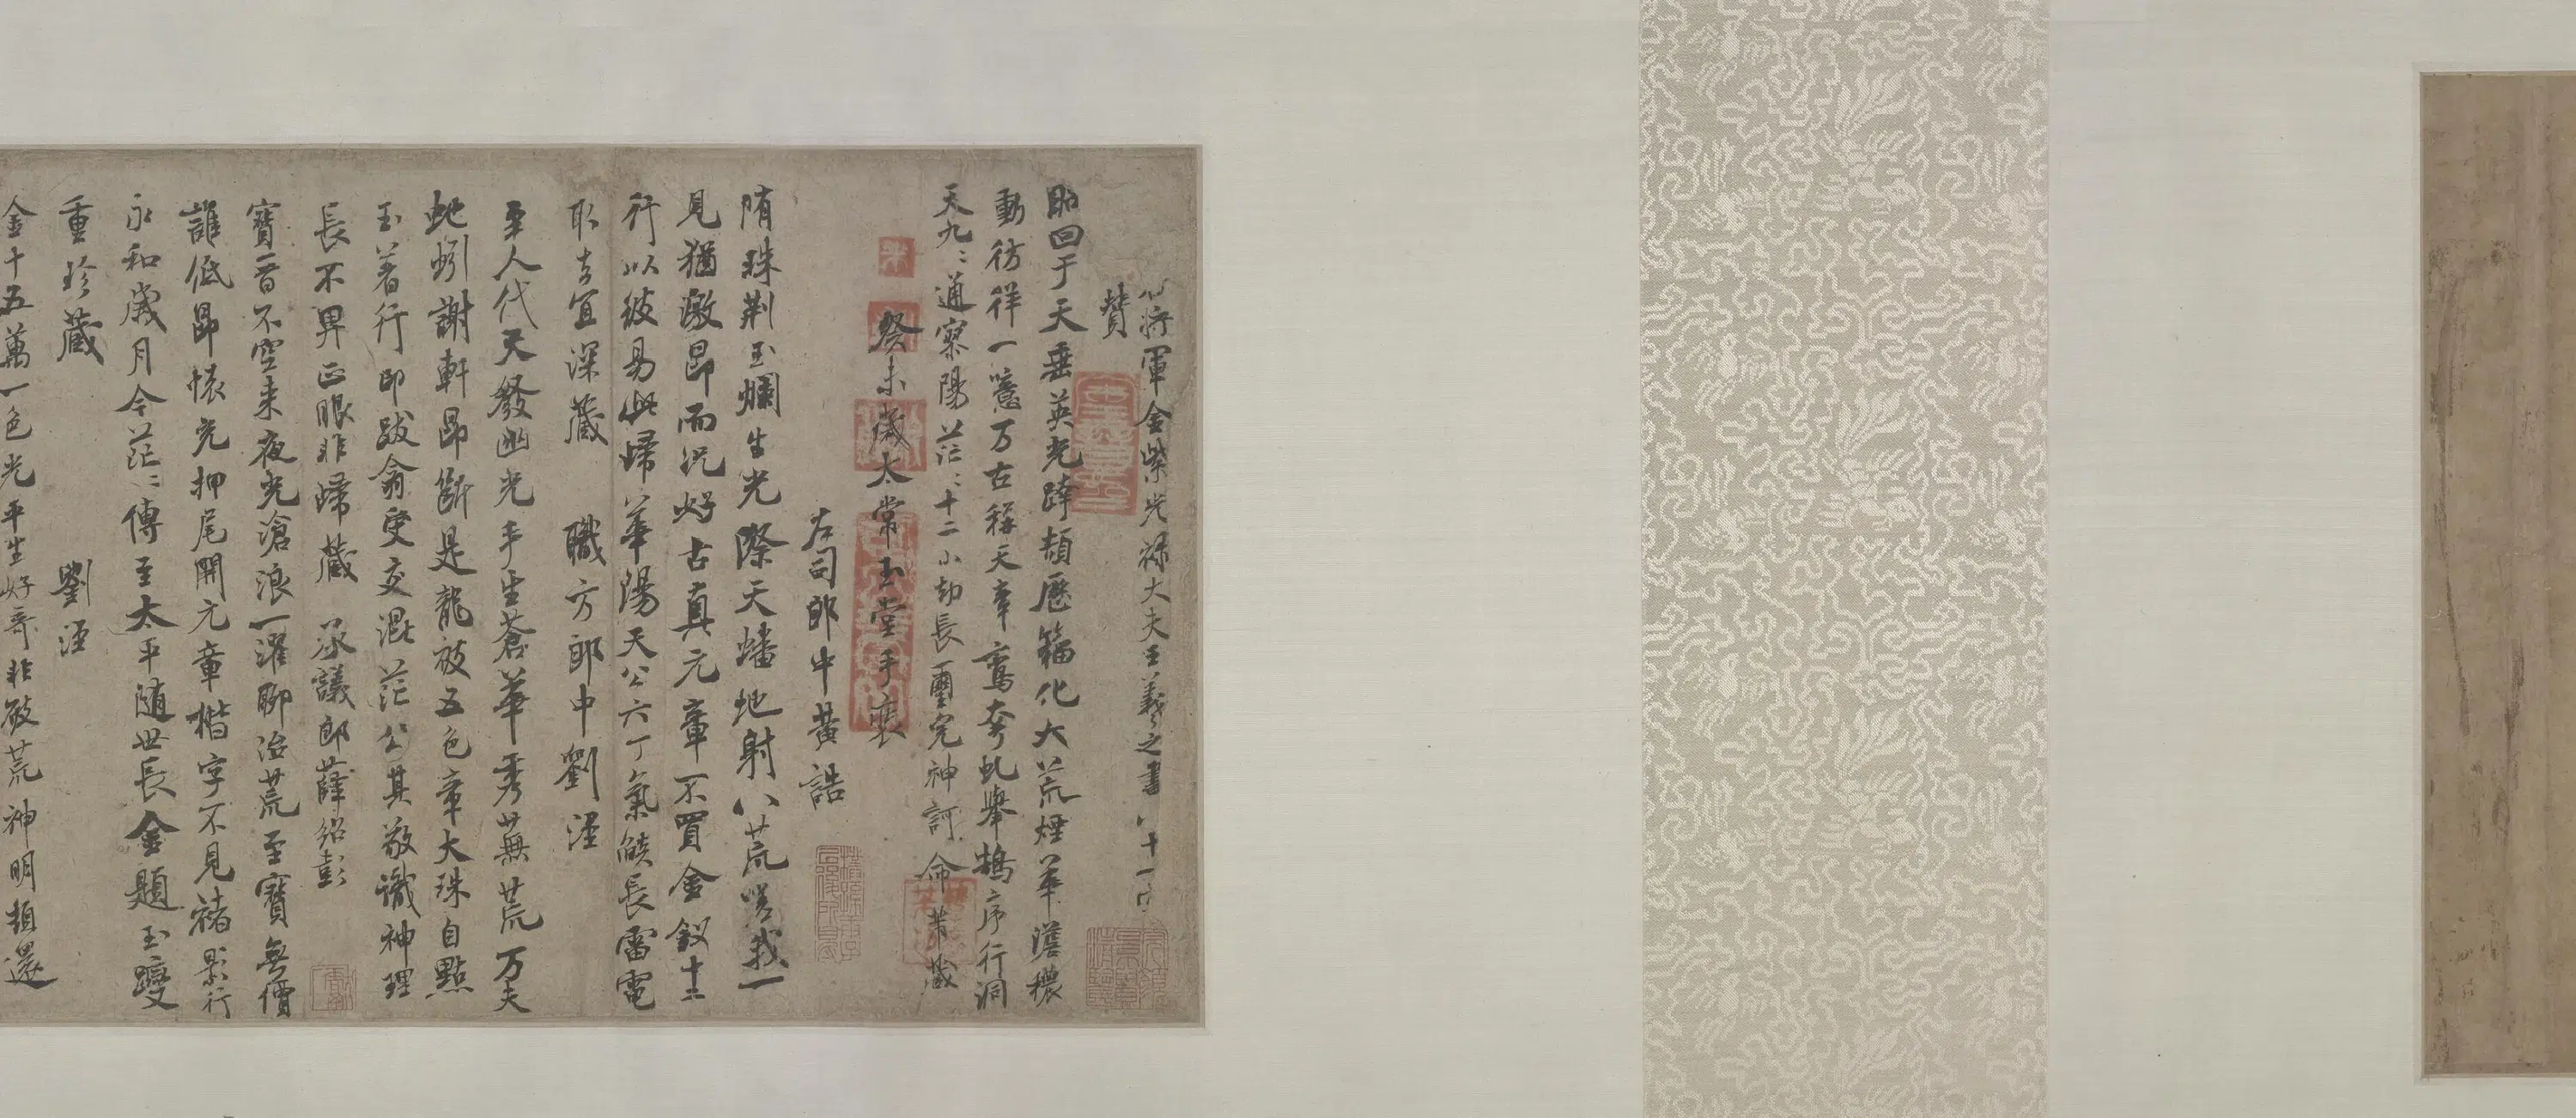 將軍金紫光祿大夫王羲之書八十一字
贊
昭回于天垂英光跨頡歷籀化大荒煙華澹穠
動彷徉一噫万古稱天章鸞奔虬舉鵠序行洞
天九〻通寥陽茫〻十二小劫長璽完神訶命芾藏
癸未歲太常玉堂手裝
左司郎中黃誥
隋珠荆玉爛生光際天蟠地射八荒嗟我一
見猶激昂而况好古真元章不買金釵十二
行以彼易此歸華陽天公六丁氣燄長雷電
取去宜深藏 職方郎中劉涇
至人代天發幽光手生蒼華秀蕪荒万夫
虵蚓謝軒昂斷是龍被五色章大珠自點
玉著行印跋龠受交混茫公其敬識神理
長不畀正眼非歸藏 承議郎薛紹彭
寶晉不空来夜光滄浪一濯聊治荒至寶無價
誰低昂懐充押尾開元章楷字不見褚影行
永和歲月今茫〻傳至太平随世長金題玉躞
重珍藏 劉涇
金十五萬一色光平生好奇非破荒神明頓還